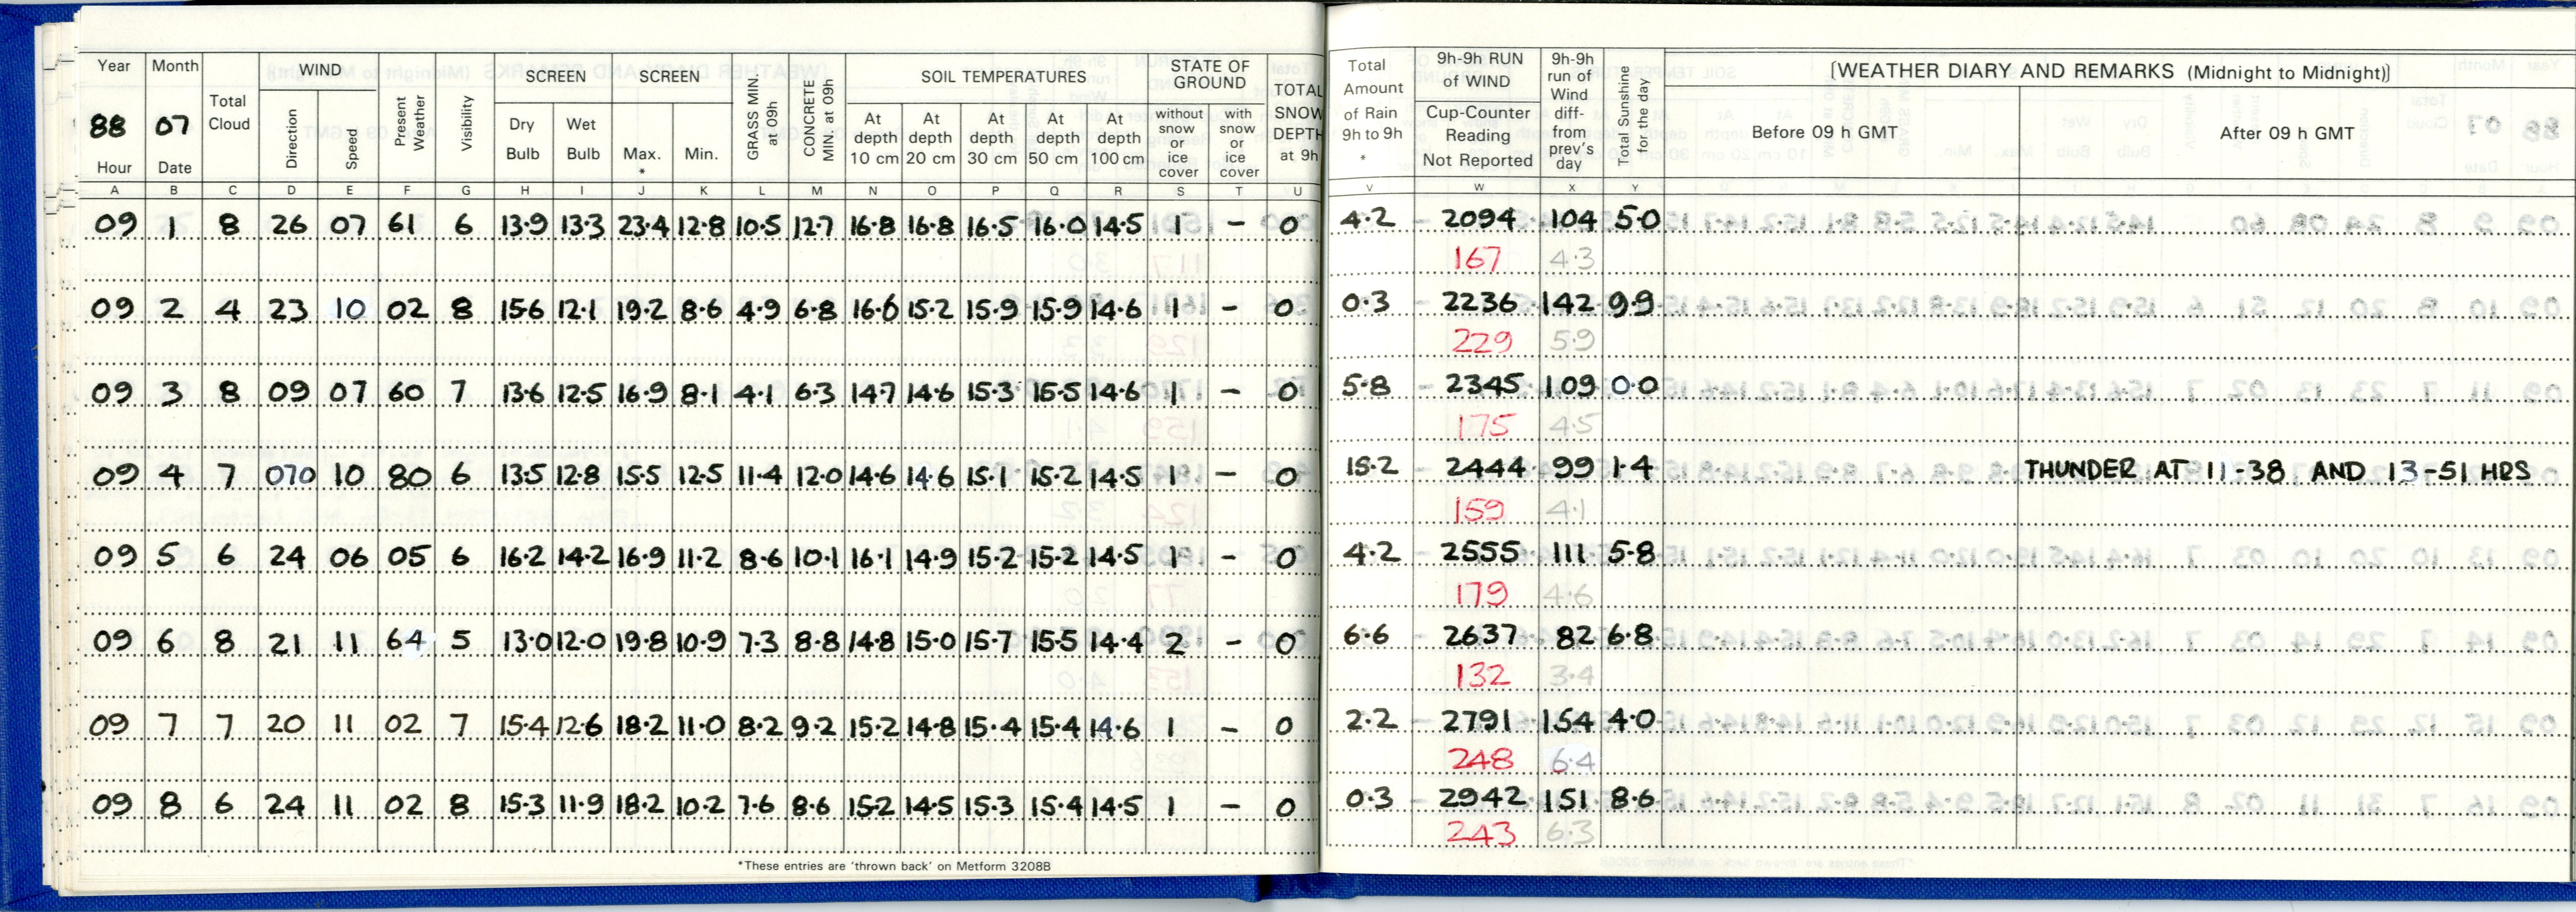 Year Month Total Cloud WIND Present Weather Visibility SCREEN SCREEN GRASS MIN at 09h CONCRETE MIN at 09h SOIL TEMPERATURES STATE OF GROUND TOTAL SNOW DEPTH at 9h Total Amount of Rain 9h to 9h * 9h-9h RUN of WIND 9h-9h run of Wind diff- from prev's day Total Sunshine for the day [WEATHER DIARY AND REMARKS (Midnight to Midnight)]
88 07 Direction Speed Dry Bulb Wet Bulb Max. * Min. At depth 10 cm At depth 20 cm At depth 30 cm At depth 50 cm At depth 100 cm without snow or ice cover with snow or ice cover Cup-Counter Reading Not Reported Before 09 h GMT After 09 h GMT
Hour Date
A B C D E F G H I J K L M N O P Q R S T U V W X Y
09 1 8 26 07 61 6 13.9 13.3 23.4 12.8 10.5 12.7 16.8 16.8 16.5 16.0 14.5 1 – 0 4.2 2094 104 5.0
167 4.3
09 2 4 23 10 02 8 15.6 12.1 19.2 8.6 4.9 6.8 16.6 15.2 15.9 15.9 14.6 1 – 0 0.3 2236 142 9.9
229 5.9
09 3 8 09 07 60 7 13.6 12.5 16.9 8.1 4.1 6.3 14.7 14.6 15.3 15.5 14.6 1 – 0 5.8 2345 109 0.0
175 4.5
09 4 7 070 10 80 6 13.5 12.8 15.5 12.5 11.4 12.0 14.6 14.6 15.1 15.2 14.5 1 – 0 15.2 2444 99 1.4 THUNDER AT 11-38 AND 13-51 HRS
159 4.1
09 5 6 24 06 05 6 16.2 14.2 16.9 11.2 8.6 10.1 16.1 14.9 15.2 15.2 14.5 1 – 0 4.2 2555 111 5.8
179 4.6
09 6 8 21 11 64 5 13.0 12.0 19.8 10.9 7.3 8.8 14.8 15.0 15.7 15.5 14.4 2 – 0 6.6 2637 82 6.8
132 3.4
09 7 7 20 11 02 7 15.4 12.6 18.2 11.0 8.2 9.2 15.2 14.8 15.4 15.4 14.6 1 – 0 2.2 2791 154 4.0
248 6.4
09 8 6 24 11 02 8 15.3 11.9 18.2 10.2 7.6 8.6 15.2 14.5 15.3 15.4 14.5 1 – 0 0.3 2942 151 8.6
243 6.3
*These entries are 'thrown back' on Metform 3208B